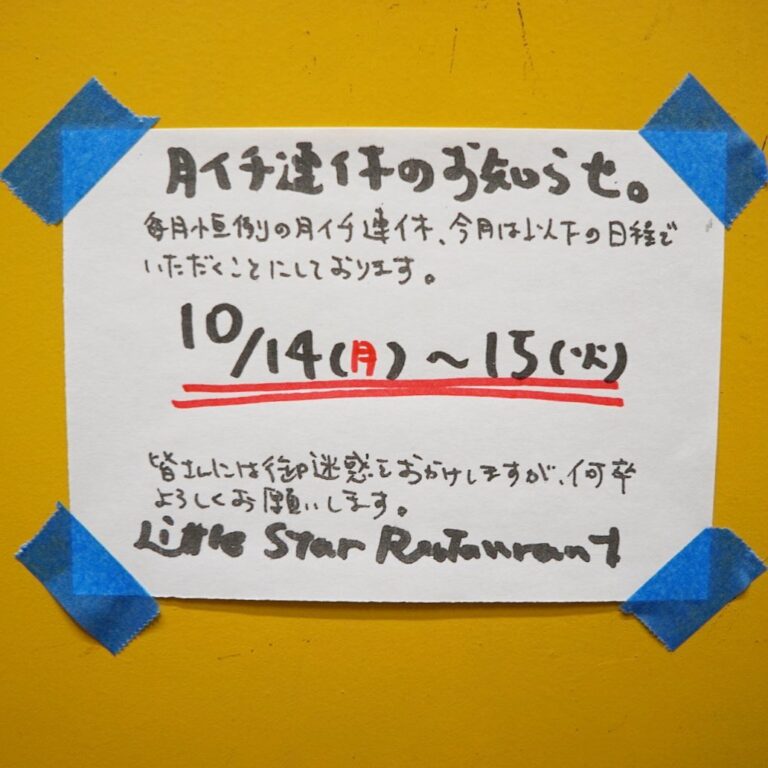 月イチ連休のお知らせ。
毎月恒例の月イチ連休、今月は以下の日程で
いただくことにしております。
10/14(月)～15(火)
皆さんには御迷惑をおかけしますが、何卒
よろしくお願いします。
Little Star Restaurant